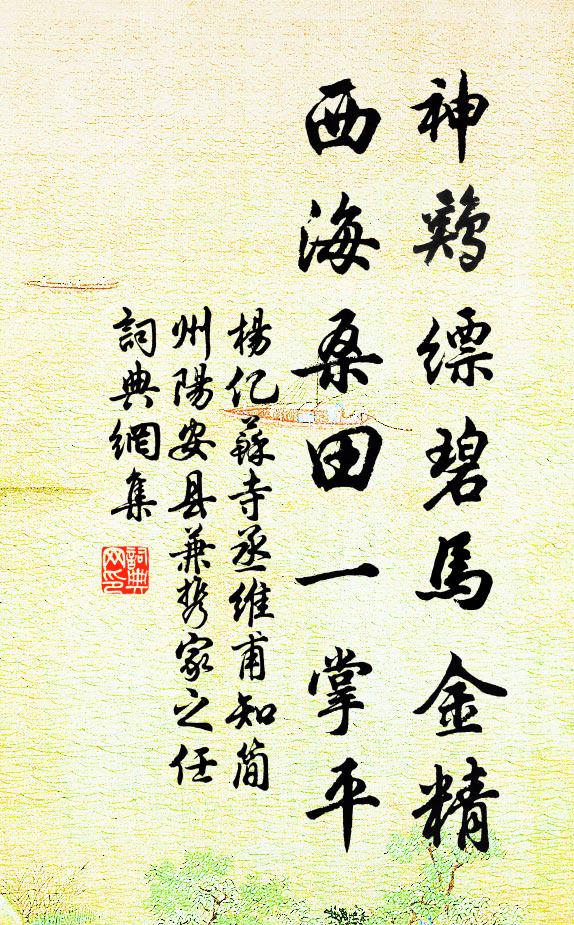 神鷄縹碧馬金精
西海桑田一掌平
楊亿蘇寺丞維甫知簡
州陽安县兼携家之任
詞典網集
詞典网印